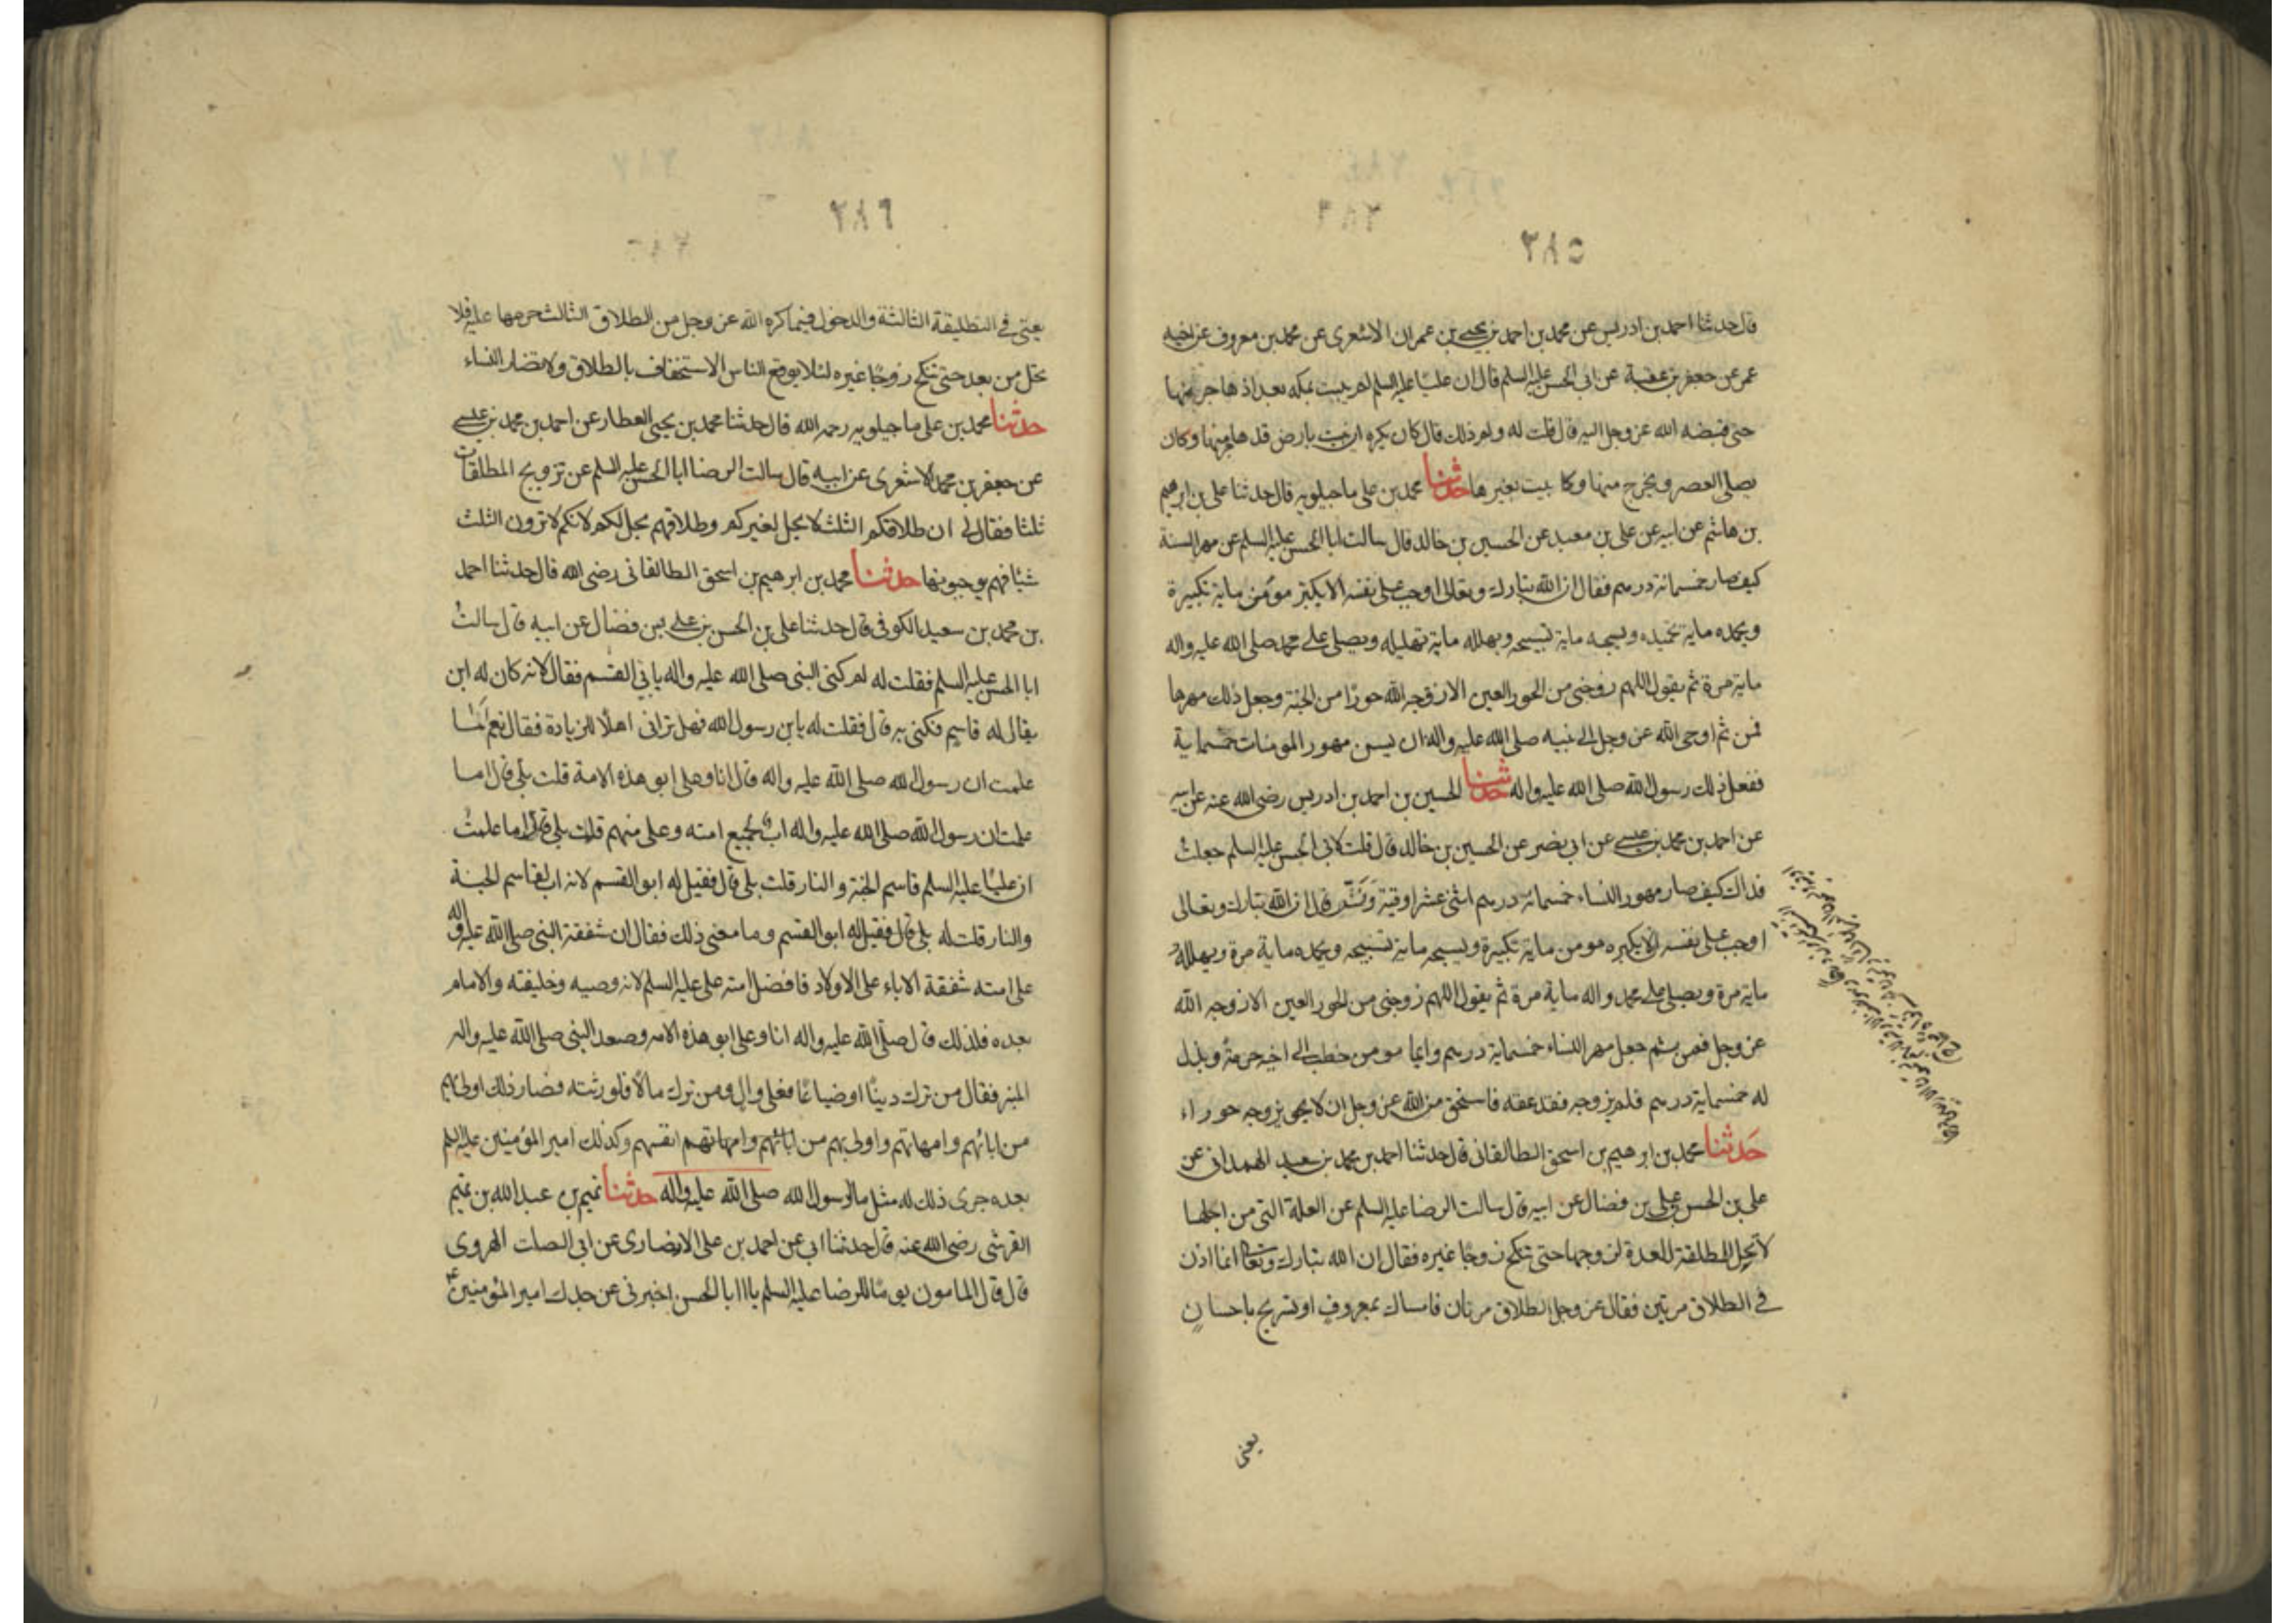 ٣٨٥
قال حدثنا احمد بن ادريس عن محمد بن احمد بن يحيى بن عمران الاشعرى عن محمد بن معروف عن اخيه
عمر عن جعفر بن عقبة عن ابى الحسن عليه السلم قال ان عليا عليه السلم لم يبت بمكه بعد اذ هاجر منها
حتى قبضه الله عز وجل اليه قال قلت له ولم ذلك قال كان يكره ان يبت بارض قد هاجر منها وكان
يصلى العصر ويخرج منها وكا يبيت بغيرها حدثنا محمد بن على ماجيلويه قال حدثنا على بن ابرهيم
بن هاشم عن ابيه عن على بن معبد عن الحسين بن خالد قال سالت ابا الحسن عليه السلم عن مهر السنة
كيف صار خمسمائة درهم فقال ان الله تبارك وتعالى اوجب على نفسه الا يكبر مؤمن ماية تكبيرة
ويحمده ماية تحميده ويسبحه ماية تسبيحه ويهلله ماية تهليله ويصلى على محمد صلى الله عليه واله
ماية مرة ثم يقول اللهم زوجنى من الحور العين الا زوجه الله حورا من الجنة وجعل ذلك مهرها
فمن ثم اوحى الله عز وجل الى نبيه صلى الله عليه واله ان يسن مهور المومنات خمسماية
ففعل ذلك رسول الله صلى الله عليه واله حدثنا الحسين بن احمد بن ادريس رضى الله عنه عن ابيه
عن احمد بن محمد بن عيسى عن ابى نصر عن الحسين بن خالد قال قلت لابى الحسن عليه السلم جعلت
فداك كيف صار مهور النساء خمسمائة درهم اثنى عشر اوقية ونش قال ان الله تبارك وتعالى
اوجب على نفسه الا يكبره مومن ماية تكبيرة ويسبحه ماية تسبيحه ويحمده ماية مرة ويهلله
ماية مرة ويصلى على محمد واله ماية مرة ثم يقول اللهم زوجنى من الحور العين الا زوجه الله
عز وجل فمن ثم جعل مهر النساء خمسماية درهم وايما مومن خطب الى اخيه حرمة وبذل
له خمسماية درهم فلم يزوجه فقد عقه فاستحق من الله عز وجل ان لا يزوجه حوراء
حدثنا محمد بن ابرهيم بن اسحق الطالقانى قال حدثنا احمد بن محمد بن سعيد الهمدانى عن
على بن الحسن بن على بن فضال عن ابيه قال سالت الرضا عليه السلم عن العلة التى من اجلها
لا تحل المطلقة للعدة لزوجها حتى تنكح زوجا غيره فقال ان الله تبارك وتعالى انما اذن
فى الطلاق مرتين فقال عز وجل الطلاق مرتان فامساك بمعروف او تسريح باحسان
يعنى
٣٨٦
يعنى فى التطليقة الثالثة والدخول فيما كره الله عز وجل من الطلاق الثالث حرمها عليه فلا
تحل من بعد حتى تنكح زوجا غيره لئلا يوقع الناس الاستخفاف بالطلاق ولا تضار النساء
حدثنا محمد بن على ماجيلويه رحمه الله قال حدثنا محمد بن يحيى العطار عن احمد بن محمد بن عيسى
عن جعفر بن محمد الاشعرى عن ابيه قال سالت الرضا ابا الحسن عليه السلم عن تزويج المطلقات
ثلثا فقال لى ان طلاقكم الثلث لا يحل لغيركم وطلاقهم يحل لكم لانكم لا ترون الثلث
شيئا فهم يوجبونها حدثنا محمد بن ابرهيم بن اسحق الطالقانى رضى الله قال حدثنا احمد
بن محمد بن سعيد الكوفى قال حدثنا على بن الحسن بن على بن فضال عن ابيه قال سالت
ابا الحسن عليه السلم فقلت له لم كنى النبى صلى الله عليه واله بابى القسم فقال لانه كان له ابن
يقال له قاسم فكنى به قال فقلت له يابن رسول الله فهل ترانى اهلا للزيادة فقال نعم اما
علمت ان رسول الله صلى الله عليه واله قال انا وعلى ابو هذه الامة قلت بلى قال اما
علمت ان رسول الله صلى الله عليه واله اب لجميع امته وعلى منهم قلت بلى قال اما علمت
ان عليا عليه السلم قاسم الجنة والنار قلت بلى قال فقيل له ابو القسم لانه اب لقاسم الجنة
والنار قلت له بلى قال فقيل له ابو القسم وما معنى ذلك فقال ان شفقة النبى صلى الله عليه واله
على امته شفقة الاباء على الاولاد فافضل امته على عليه السلم لانه وصيه وخليفته والامام
بعده فلذلك قال صلى الله عليه واله انا وعلى ابو هذه الامه وصعد النبى صلى الله عليه واله
المنبر فقال من ترك دينا او ضياعا فعلى والى ومن ترك مالا فلورثته فصار ذلك اولى بهم
من ابائهم وامهاتهم واولى بهم من ابائهم وامهاتهم انفسهم وكذلك امير المؤمنين عليه السلم
بعده جرى ذلك له مثل ما لرسول الله صلى الله عليه واله حدثنا تميم بن عبد الله بن تميم
القرشى رضى الله عنه قال حدثنا ابى عن احمد بن على الانصارى عن ابى الصلت الهروى
قال قال المامون يوما للرضا عليه السلم يا ابا الحسن اخبرنى عن جدك امير المؤمنين